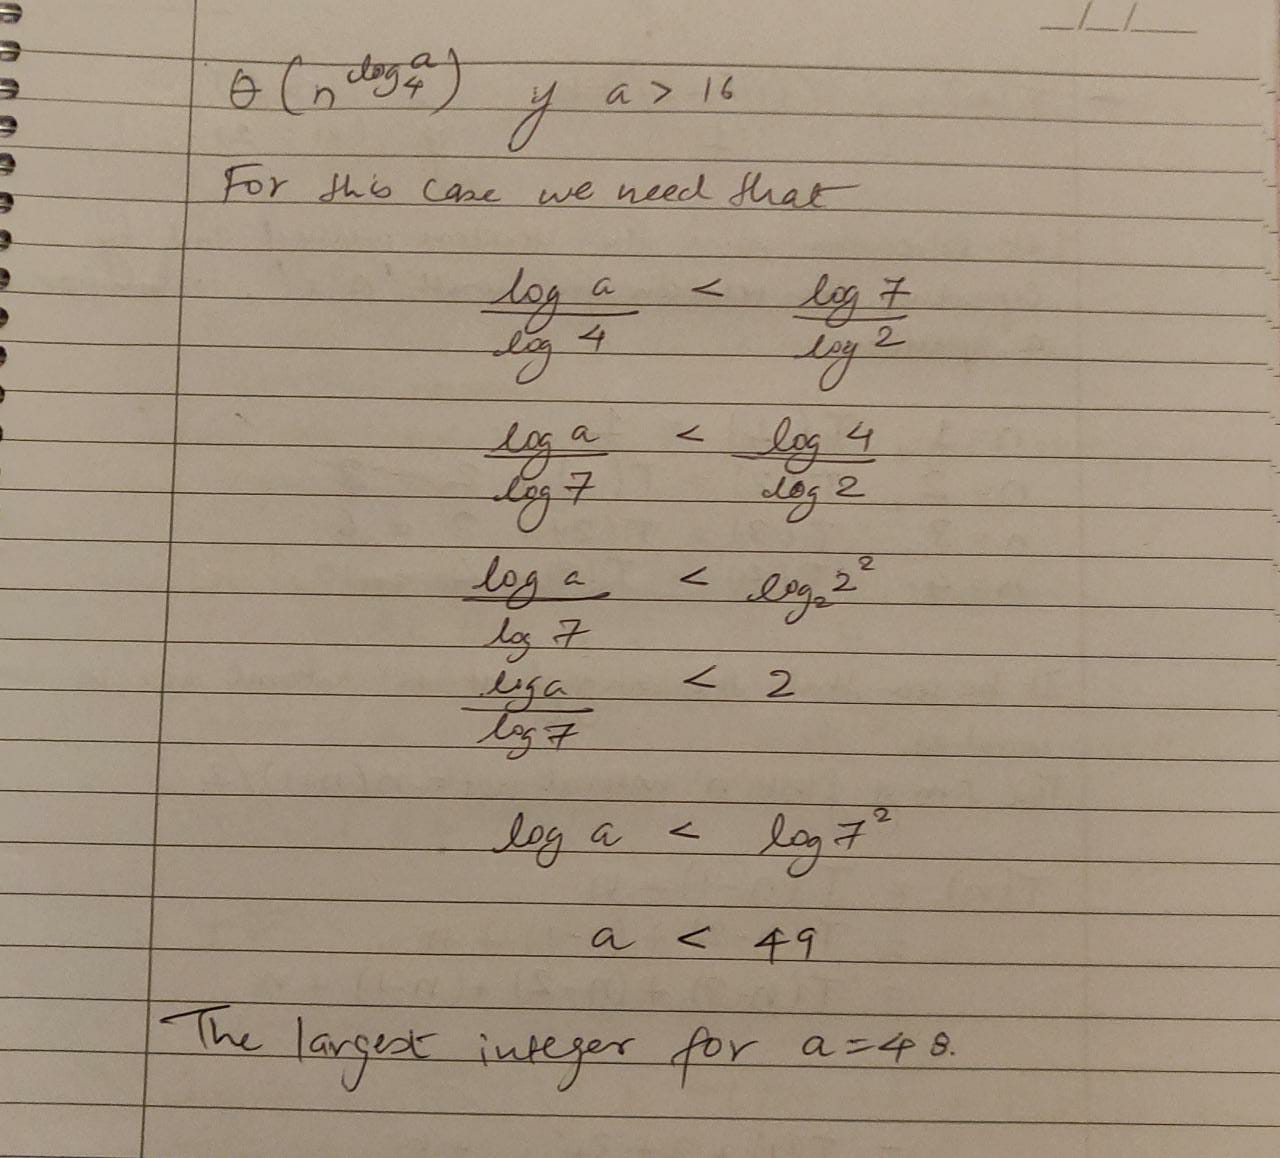 _/_/__
θ(n^log_4^a) y a > 16
For this case we need that
log a / log 4 < log 7 / log 2
log a / log 7 < log 4 / log 2
log a / log 7 < log₂ 2²
log a / log 7 < 2
log a < log 7²
a < 49
The largest integer for a = 48.